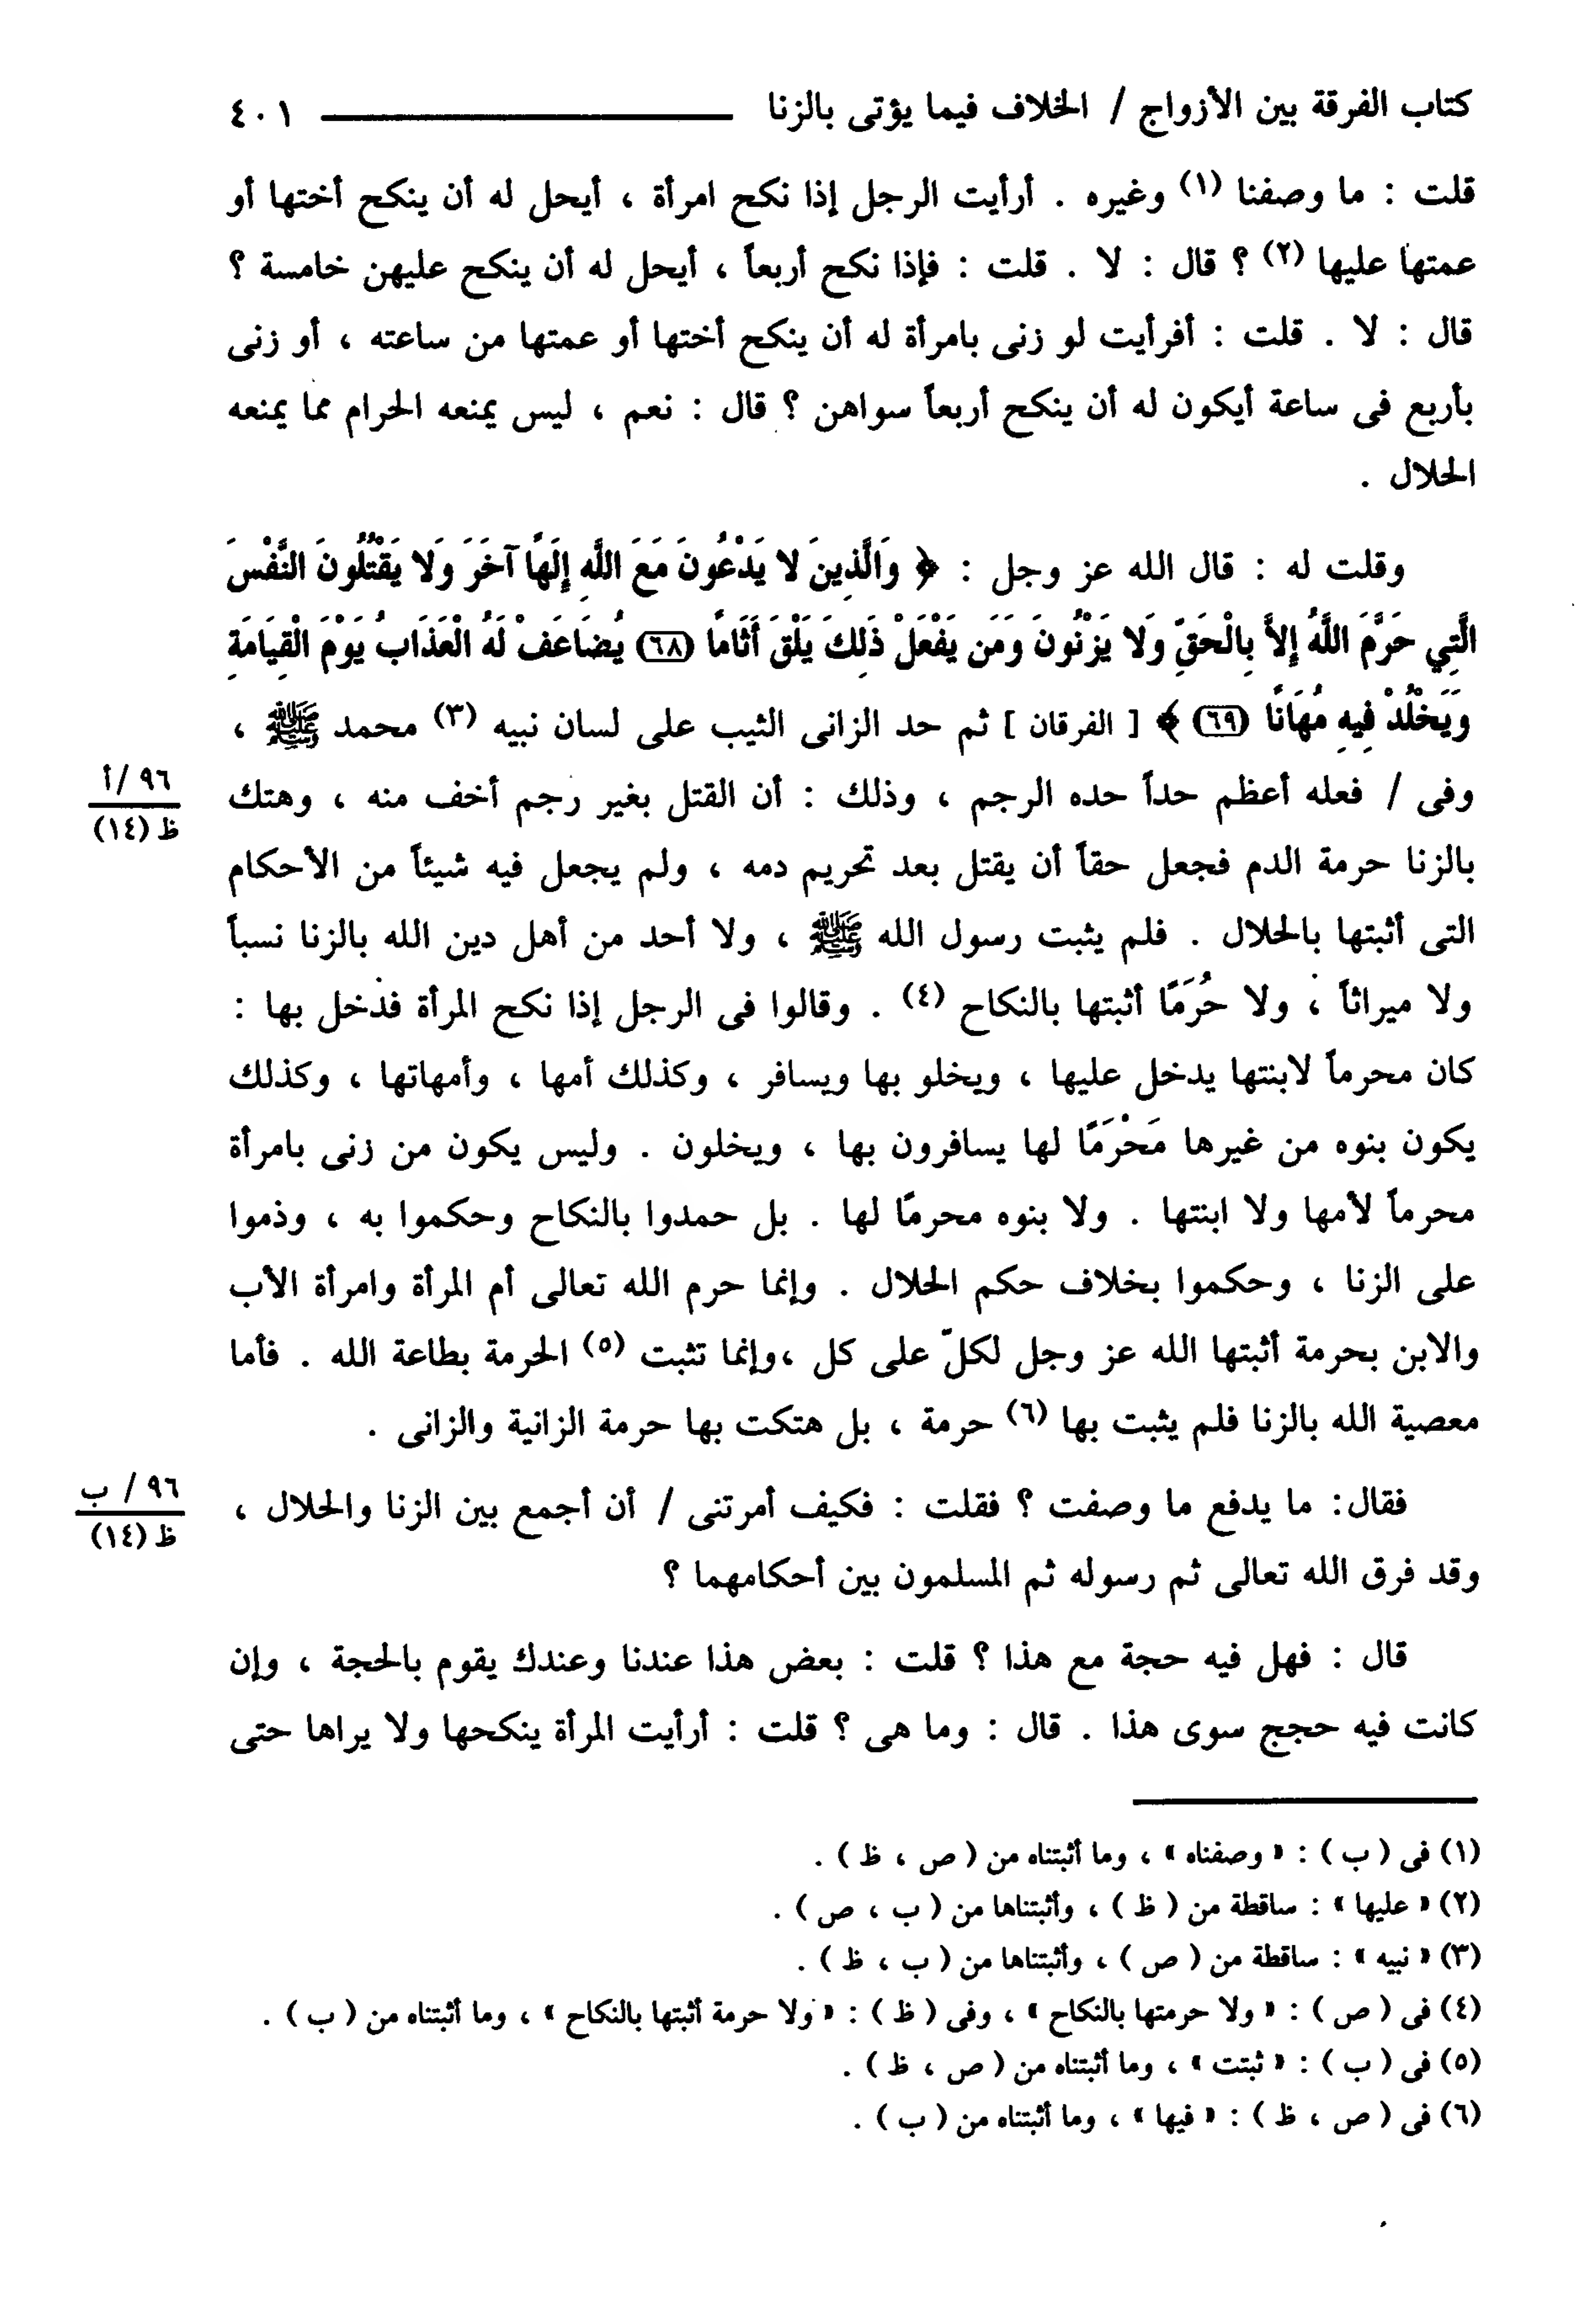 كتاب الفرقة بين الأزواج / الخلاف فيما يؤتى بالزنا ـــــــ ٤٠١
قلت : ما وصفنا (١) وغيره . أرأيت الرجل إذا نكح امرأة ، أيحل له أن ينكح أختها أو
عمتها عليها (٢) ؟ قال : لا . قلت : فإذا نكح أربعاً ، أيحل له أن ينكح عليهن خامسة ؟
قال : لا . قلت : أفرأيت لو زنى بامرأة له أن ينكح أختها أو عمتها من ساعته ، أو زنى
بأربع فى ساعة أيكون له أن ينكح أربعاً سواهن ؟ قال : نعم ، ليس يمنعه الحرام مما يمنعه
الحلال .
وقلت له : قال الله عز وجل : ﴿ وَالَّذِينَ لا يَدْعُونَ مَعَ اللَّهِ إِلَهًا آخَرَ وَلا يَقْتُلُونَ النَّفْسَ
الَّتِي حَرَّمَ اللَّهُ إِلاَّ بِالْحَقِّ وَلا يَزْنُونَ وَمَن يَفْعَلْ ذَلِكَ يَلْقَ أَثَامًا (٦٨) يُضَاعَفْ لَهُ الْعَذَابُ يَوْمَ الْقِيَامَةِ
وَيَخْلُدْ فِيهِ مُهَانًا (٦٩) ﴾ [ الفرقان ] ثم حد الزانى الثيب على لسان نبيه (٣) محمد ﷺ ،
وفى / فعله أعظم حداً حده الرجم ، وذلك : أن القتل بغير رجم أخف منه ، وهتك
٩٦/أ
ظ (١٤)
بالزنا حرمة الدم فجعل حقاً أن يقتل بعد تحريم دمه ، ولم يجعل فيه شيئاً من الأحكام
التى أثبتها بالحلال . فلم يثبت رسول الله ﷺ ، ولا أحد من أهل دين الله بالزنا نسباً
ولا ميراثاً ، ولا حُرَمًا أثبتها بالنكاح (٤) . وقالوا فى الرجل إذا نكح المرأة فدخل بها :
كان محرماً لابنتها يدخل عليها ، ويخلو بها ويسافر ، وكذلك أمها ، وأمهاتها ، وكذلك
يكون بنوه من غيرها مَحْرَمًا لها يسافرون بها ، ويخلون . وليس يكون من زنى بامرأة
محرماً لأمها ولا ابنتها . ولا بنوه محرمًا لها . بل حمدوا بالنكاح وحكموا به ، وذموا
على الزنا ، وحكموا بخلاف حكم الحلال . وإنما حرم الله تعالى أم المرأة وامرأة الأب
والابن بحرمة أثبتها الله عز وجل لكلّ على كل ،وإنما تثبت (٥) الحرمة بطاعة الله . فأما
معصية الله بالزنا فلم يثبت بها (٦) حرمة ، بل هتكت بها حرمة الزانية والزانى .
فقال: ما يدفع ما وصفت ؟ فقلت : فكيف أمرتنى / أن أجمع بين الزنا والحلال ،
٩٦ / ب
ظ (١٤)
وقد فرق الله تعالى ثم رسوله ثم المسلمون بين أحكامهما ؟
قال : فهل فيه حجة مع هذا ؟ قلت : بعض هذا عندنا وعندك يقوم بالحجة ، وإن
كانت فيه حجج سوى هذا . قال : وما هى ؟ قلت : أرأيت المرأة ينكحها ولا يراها حتى
(١) فى ( ب ) : « وصفناه » ، وما أثبتناه من ( ص ، ظ ) .
(٢) « عليها » : ساقطة من ( ظ ) ، وأثبتناها من ( ب ، ص ) .
(٣) « نبيه » : ساقطة من ( ص ) ، وأثبتناها من ( ب ، ظ ) .
(٤) فى ( ص ) : « ولا حرمتها بالنكاح » ، وفى ( ظ ) : « ولا حرمة أثبتها بالنكاح » ، وما أثبتناه من ( ب ) .
(٥) فى ( ب ) : « ثبتت » ، وما أثبتناه من ( ص ، ظ ) .
(٦) فى ( ص ، ظ ) : « فيها » ، وما أثبتناه من ( ب ) .